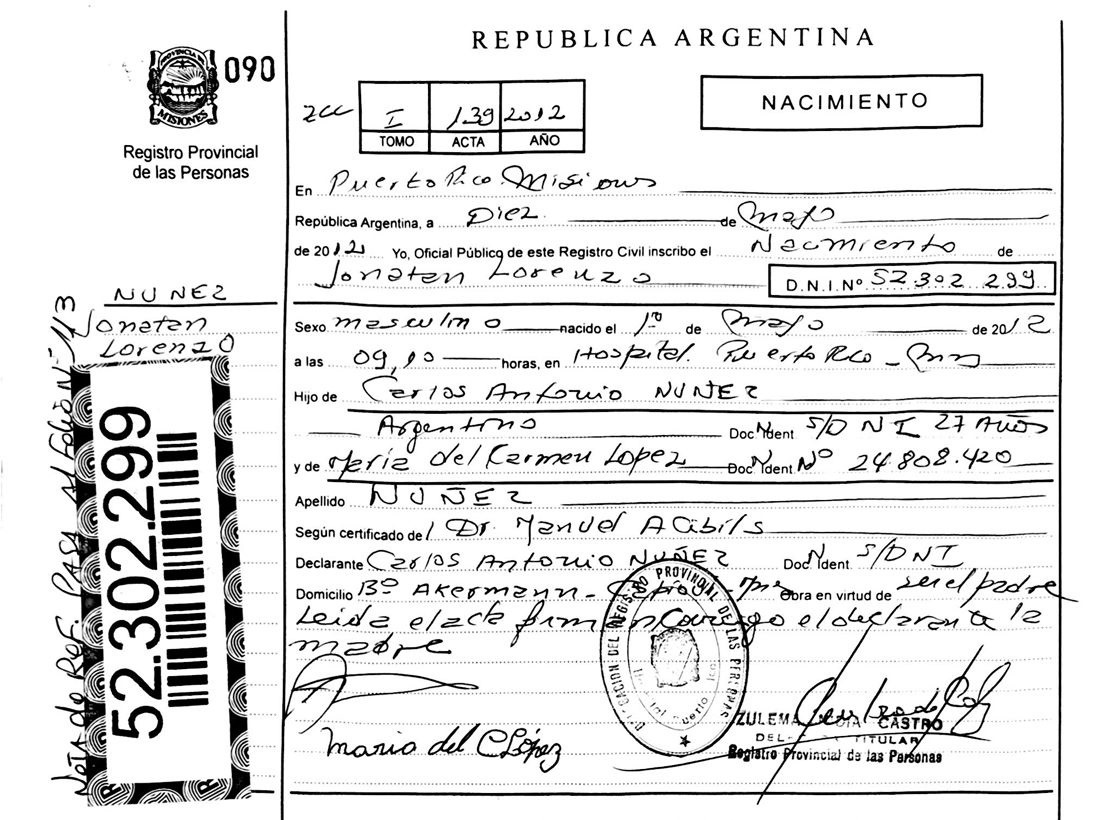 REPUBLICA ARGENTINA
PROVINCIA DE
MISIONES
090
Registro Provincial
de las Personas
I 139 2012
TOMO ACTA AÑO
NACIMIENTO
En Puerto Rico Misiones
República Argentina, a Diez de Mayo
de 2012 Yo, Oficial Público de este Registro Civil inscribo el Nacimiento de
Jonatan Lorenzo D.N.I.Nº 52.302.299
NUNEZ
Jonatan
Lorenzo
Sexo masculino nacido el 1º de Mayo de 2012
a las 09,10 horas, en Hospital. Puerto Rico
Hijo de Carlos Antonio NUÑEZ
Argentino Doc. Ident S/DNI 27 Años
y de Maria del Carmen Lopez Doc. Ident Nº 24.808.420
Apellido NUÑEZ
Según certificado de Dr. Manuel
Declarante Carlos Antonio NUÑEZ Doc. Ident. S/DNI
Domicilio Bº Akermann Obra en virtud de ser el padre
Leida el acta firman el declarante la
madre
Maria del C López
ZULEMA CASTRO
TITULAR
Registro Provincial de las Personas
REGISTRO PROVINCIAL DE LAS PERSONAS
52.302.299